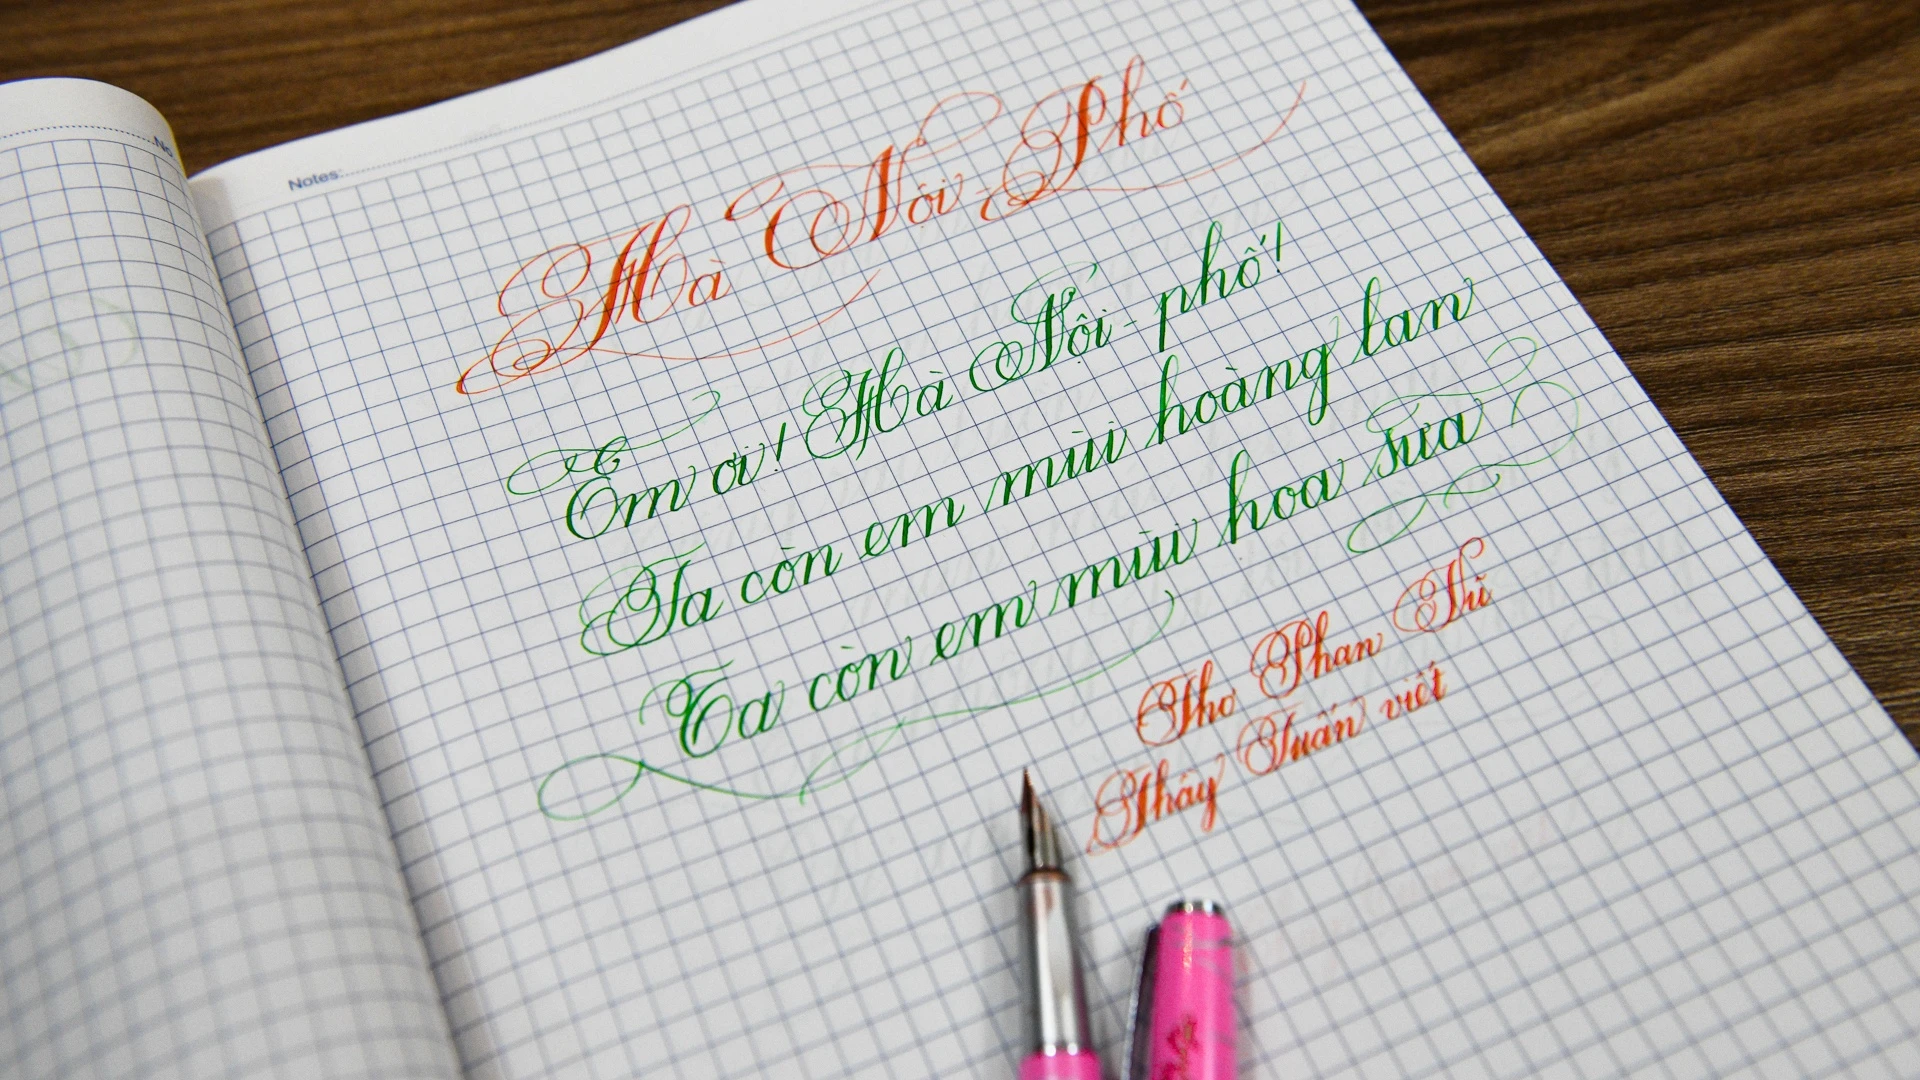 No
Notes:
Hà Nội - Phố
Em ơi! Hà Nội - phố!
Ta còn em mùi hoàng lan
Ta còn em mùi hoa sữa
Thơ Phan Vũ
Thầy Tuấn viết